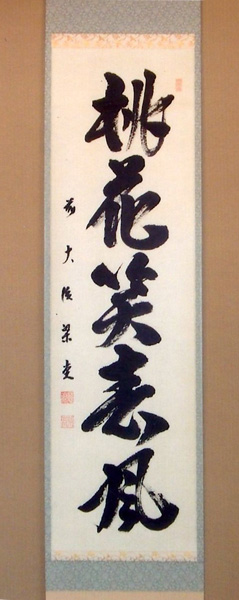 桃花笑春風
前大徳